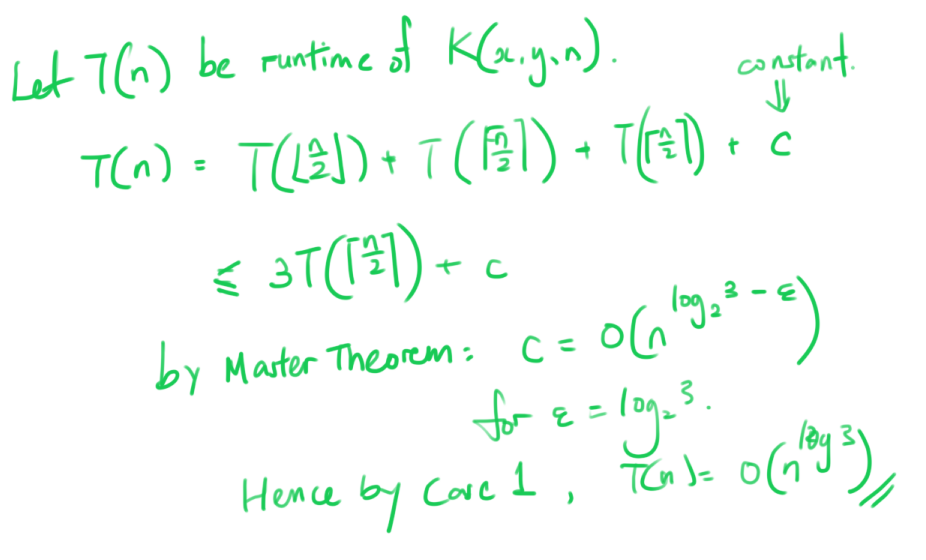 Let T(n) be runtime of K(x,y,n).
constant.
⇓
T(n) = T(⌊n/2⌋) + T(⌈n/2⌉) + T(⌈n/2⌉) + c
≤ 3T(⌈n/2⌉) + c
by Master Theorem: c = O(n^{log₂3 - ε})
for ε = log₂3.
Hence by Case 1, T(n) = O(n^{log 3})